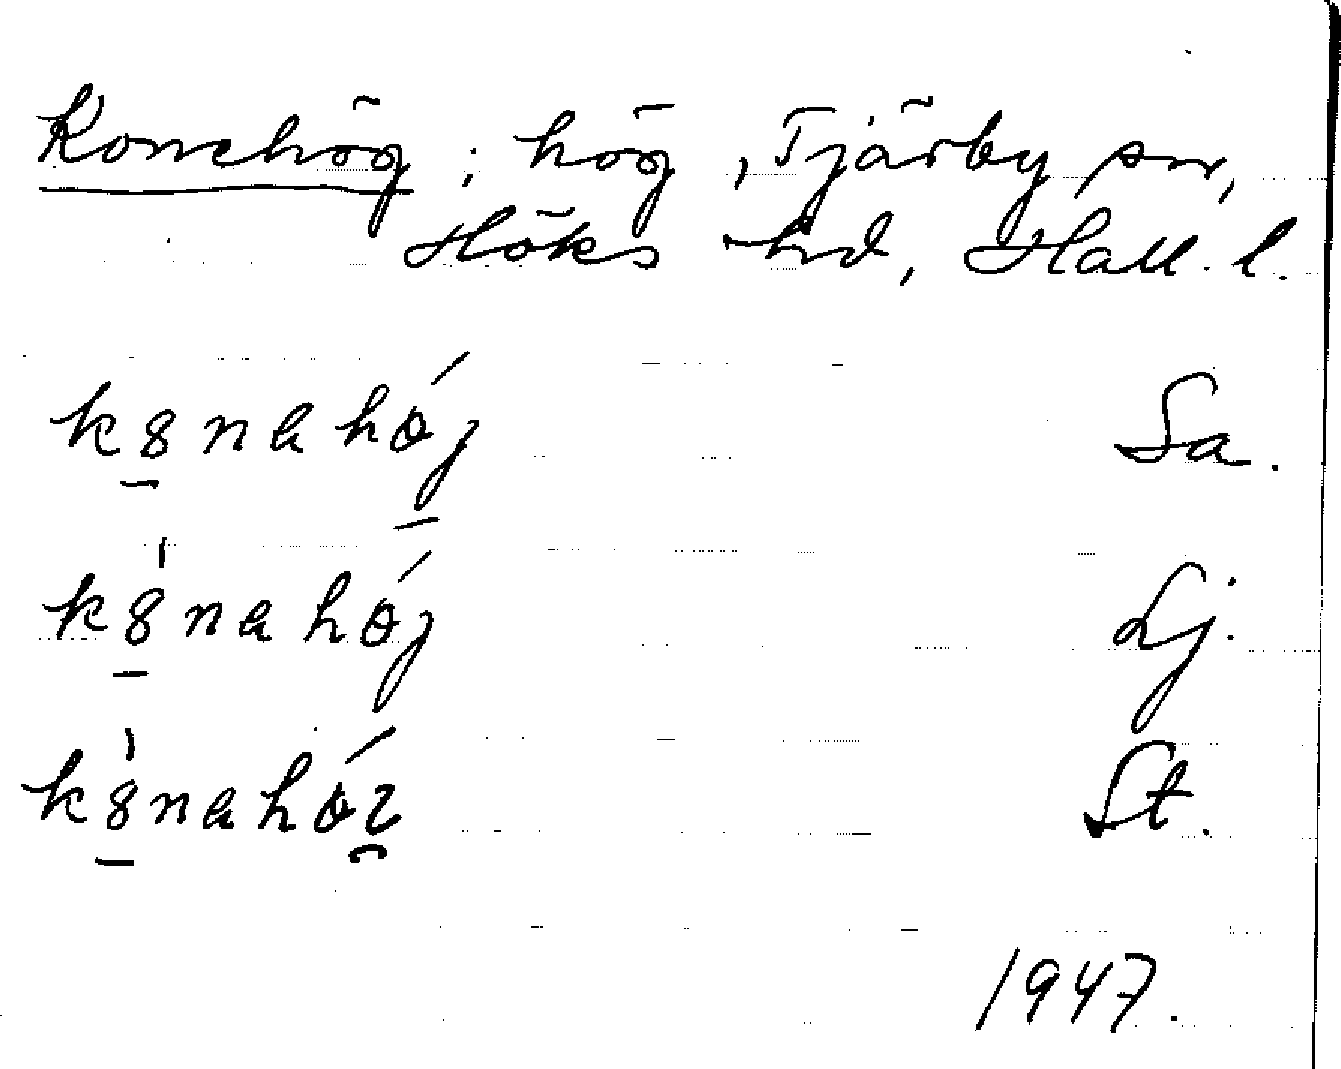 Konehög; hög, Tjärby sn,
Höks hd, Hall. l.
k8nahǿj Sa.
k8̍nahǿj Lj.
k8̍nahǿɿ St.
1947.